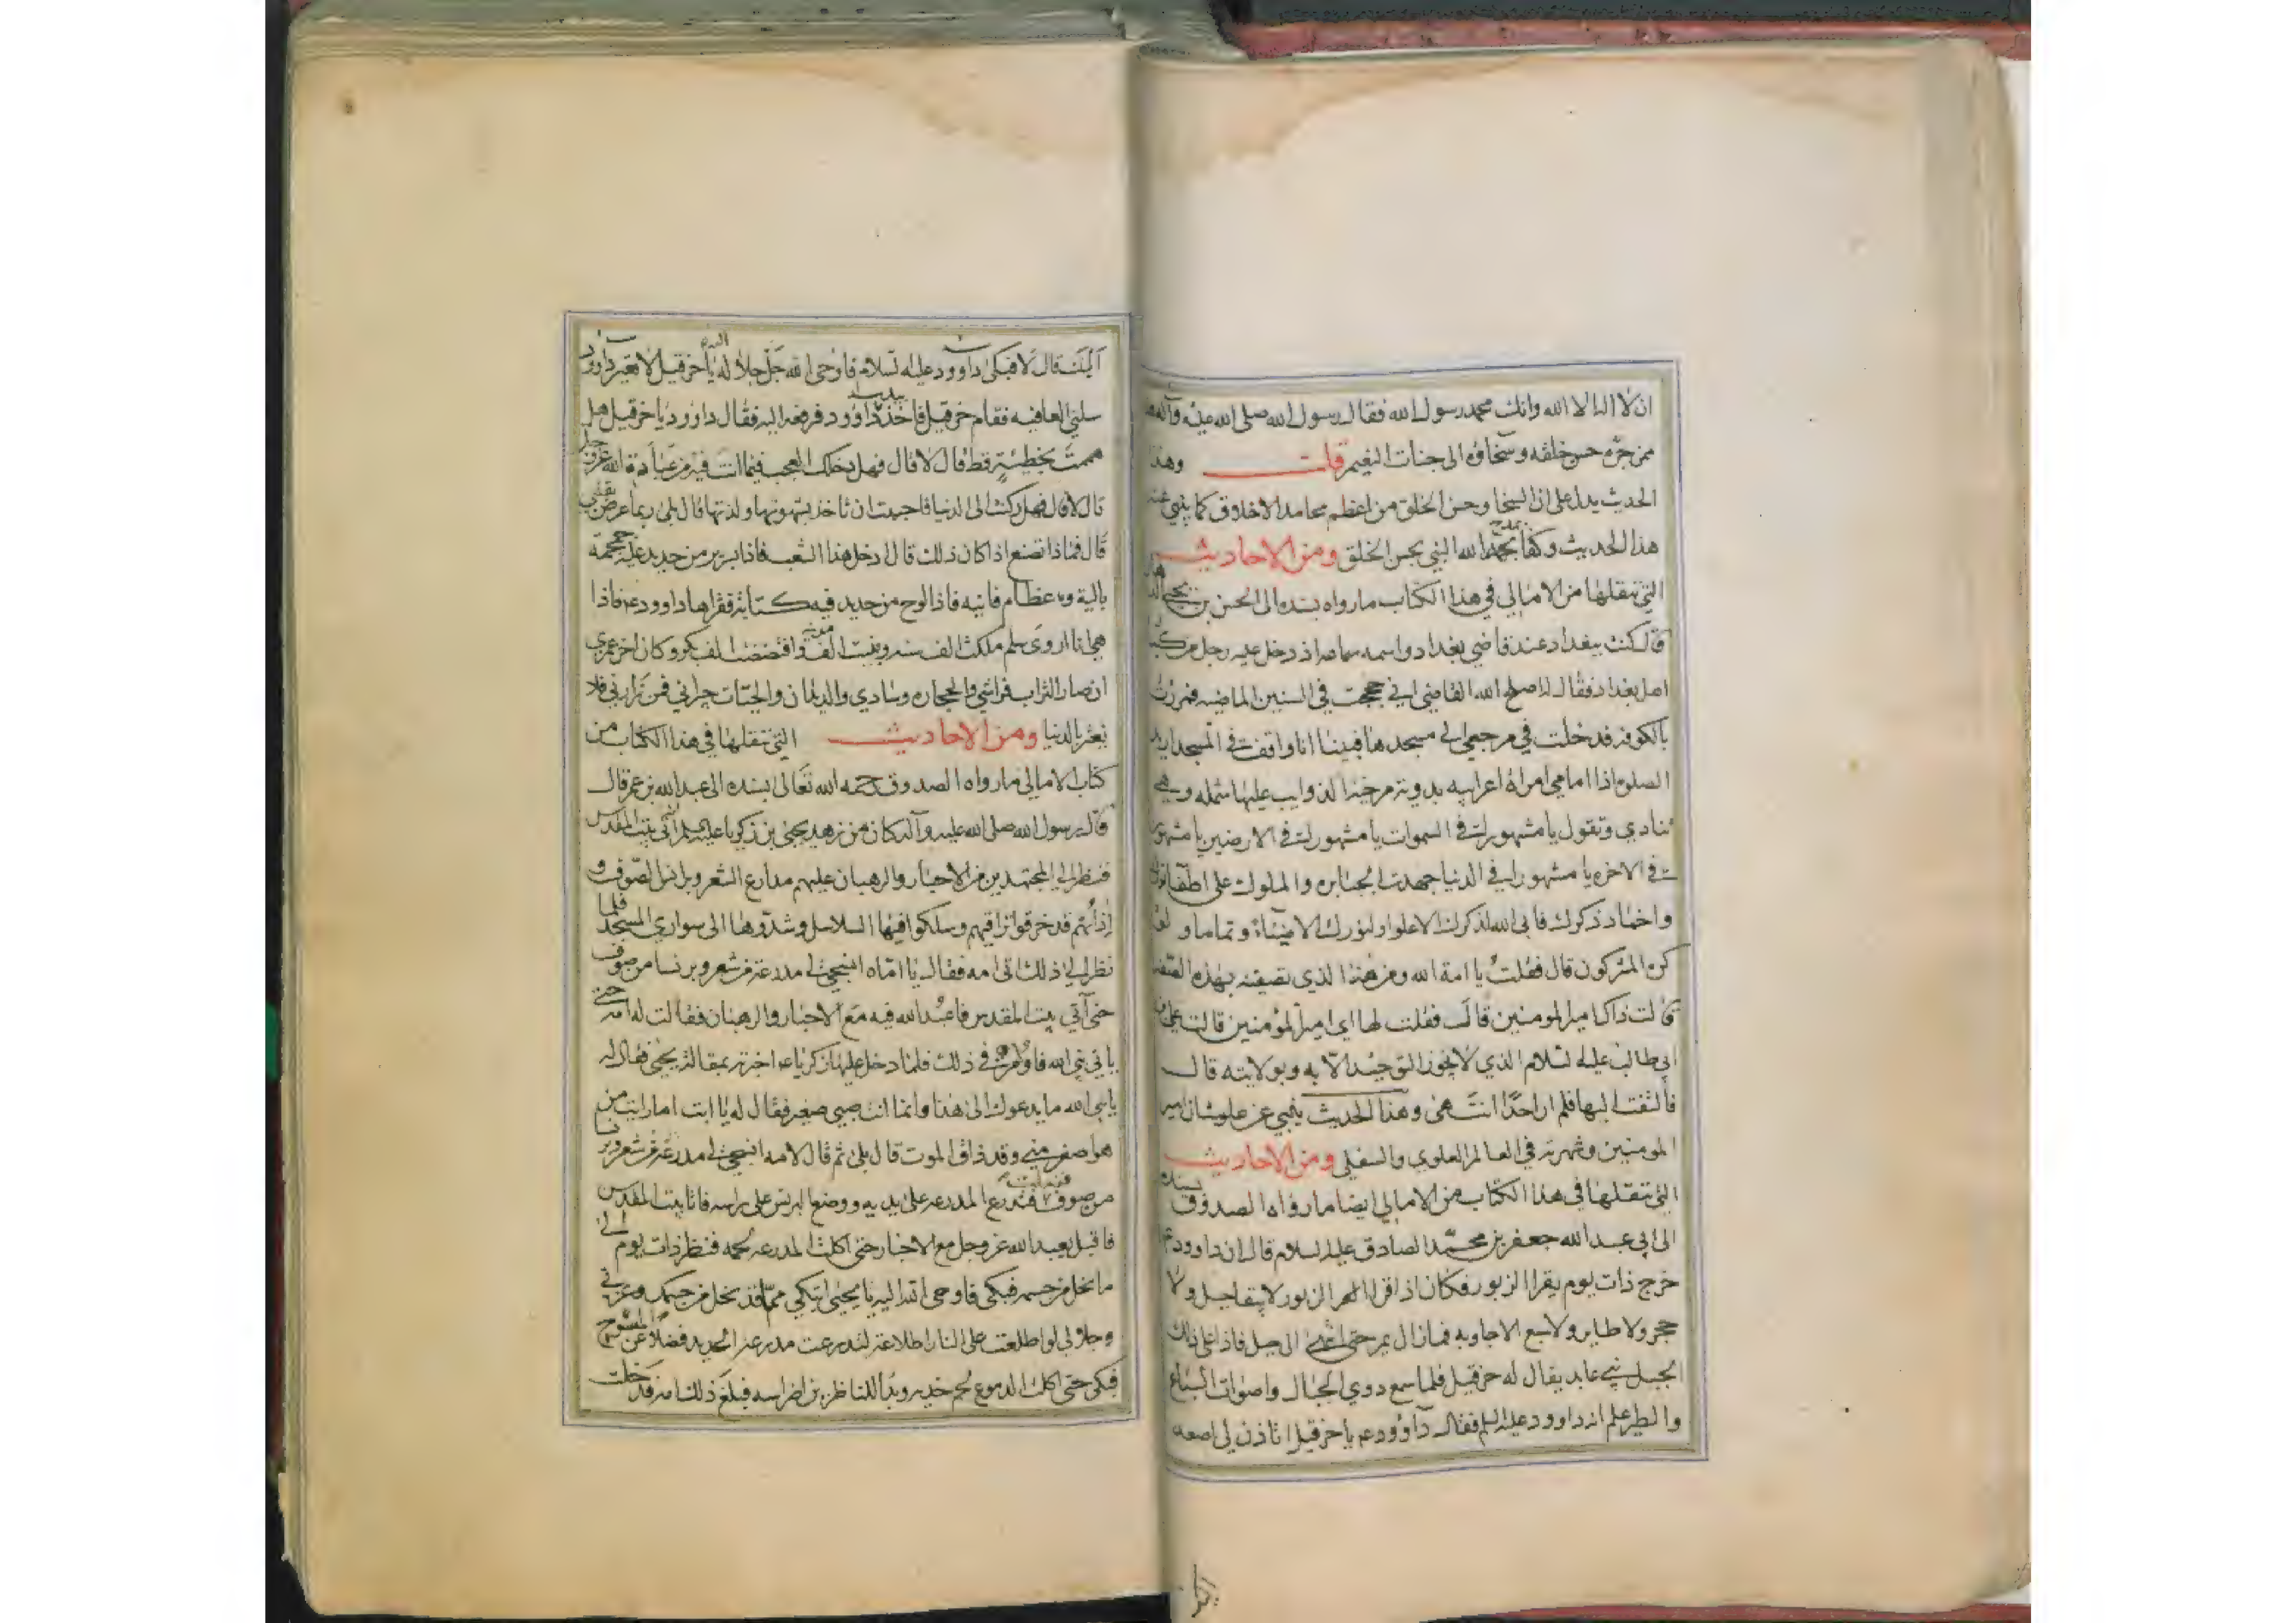 ان لا اله الا الله وانك محمد رسول الله فقال رسول الله صلى الله عليه وآله
ممن جره حسن خلقه وسخاؤه الى جنات النعيم قلت وهذا
الحديث يدل على ان السخا وحسن الخلق من اعظم محامد الاخلاق كما ينبي عنه
هذا الحديث وكفا بمدح الله النبي بحسن الخلق ومن الاحاديث
التي ننقلها من الامالي في هذا الكتاب ما رواه بسنده الى الحسن بن يحيى
قال كنت ببغداد عند قاضي بغداد واسمه سماعه اذ دخل عليه رجل من كبار
اهل بغداد فقال له اصلح الله القاضي اني حججت في السنين الماضيه فمررت
بالكوفه فدخلت في مرجعي الى مسجدها فبينا انا واقف في المسجد اريد
الصلوه اذا امامي امراة اعرابيه بدويه مرخية الذوايب عليها شمله وهي
تنادي وتقول يا مشهورا في السموات يا مشهورا في الارضين يا مشهورا
في الاخره يا مشهورا في الدنيا جهدت الجبابره والملوك على اطفاء نورك
واخماد ذكرك فابى الله لذكرك الا علوا ولنورك الا ضياء وتماما ولو
كره المشركون قال فقلت يا امة الله ومن هذا الذي تصفينه بهذه الصفه
قالت ذاك امير المومنين قال فقلت لها اي امير المؤمنين قالت علي بن
ابي طالب عليه السلام الذي لا يجوز التوحيد الا به وبولايته قال
فالتفت اليها فلم ار احدا انتهى وهذا الحديث ينبي عن علو شان امير
المومنين وشهرته في العالم العلوي والسفلي ومن الاحاديث
التي ننقلها في هذا الكتاب من الامالي ايضا ما رواه الصدوق بسنده
الى ابي عبد الله جعفر بن محمد الصادق عليه السلام قال ان داوود ع
خرج ذات يوم يقرا الزبور فكان اذا قرا الزبور لا يبقا جبل ولا
حجر ولا طاير ولا سبع الا جاوبه فما زال يمر حتى انتهى الى جبل فاذا على ذلك
الجبل نبي عابد يقال له حزقيل فلما سمع دوي الجبال واصوات السباع
والطير علم انه داوود عليه السلم فقال داوود ع يا حزقيل اتاذن لي اصعد
اليك قال لا فبكى داوود عليه السلام فاوحى الله جل جلاله اليه يا حزقيل لا تعير داوود
سلني العافيه فقام حزقيل فاخذ بيد داوود فرفعه اليه فقال داوود يا حزقيل هل
هممت بخطيئة قط قال لا قال فهل دخلك العجب فيما انت فيه من عبادة الله عز وجل
قال لا قال فهل ركنت الى الدنيا فاحببت ان تاخذ بشهوتها ولذتها قال بلى ربما عرض بقلبي
قال فماذا تصنع اذا كان ذلك قال ادخل هذا الشعب فاذا سرير من حديد عليه جمجمة
بالية وعظام فانيه فاذا لوح من حديد فيه كتابة فقراها داوود ع فاذا
هي انا اروى سلم ملكت الف سنه وبنيت الف مدينة وافتضضت الف بكر وكان اخر عمري
ان صار التراب فراشي والحجاره وسادي والديدان والحيات جيراني فمن زارني فلا
يغتر بالدنيا ومن الاحاديث التي ننقلها في هذا الكتاب من
كتاب الامالي ما رواه الصدوق رحمه الله تعالى بسنده الى عبد الله بن عمر قال
قال رسول الله صلى الله عليه وآله كان من زهد يحيى بن زكريا عليهم السلم انه اتى بيت المقدس
فنظر الى المجتهدين من الاحبار والرهبان عليهم مدارع الشعر وبرانس الصوف و
اذا هم قد خرقوا تراقيهم وسلكوا فيها السلاسل وشدوها الى سواري المسجد فلما
نظر الى ذلك اتى امه فقال يا اماه انسجي لي مدرعة من شعر وبرنسا من صوف
حتى آتي بيت المقدس فاعبد الله فيه مع الاحبار والرهبان فقالت له امه حتى
ياتي نبي الله فاوامره في ذلك فلما دخل عليها زكريا ع اخبرته بمقالة يحيى فقال له
يا بني الله ما يدعوك الى هذا وانما انت صبي صغير فقال له يا ابت اما رايت من
هو اصغر مني وقد ذاق الموت قال بلى ثم قال لامه انسجي له مدرعة من شعر وبرنسا
من صوف ففعلت فتدرع المدرعه على يديه ووضع البرنس على راسه فاتا بيت المقدس
فاقبل يعبد الله عز وجل مع الاحبار حتى اكلت المدرعه لحمه فنظر ذات يوم الى
ما نحل من جسمه فبكى فاوحى الله اليه يا يحيى اتبكي مما قد نحل من جسمك وعزتي
وجلالي لو اطلعت على النار اطلاعة لتدرعت مدرعة الحديد فضلا عن المنسوج
فبكى حتى اكلت الدموع لحم خديه وبدا للناظرين اضراسه فبلغ ذلك امه فدخلت